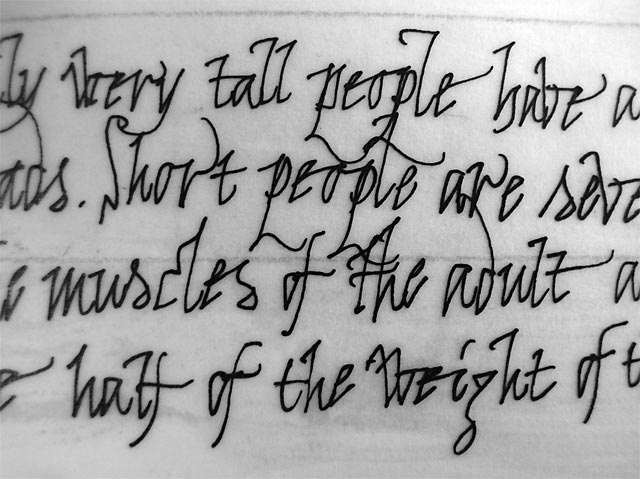 ly very tall people have a
ads. Short people are seve
e muscles of the adult a
e half of the weight of t